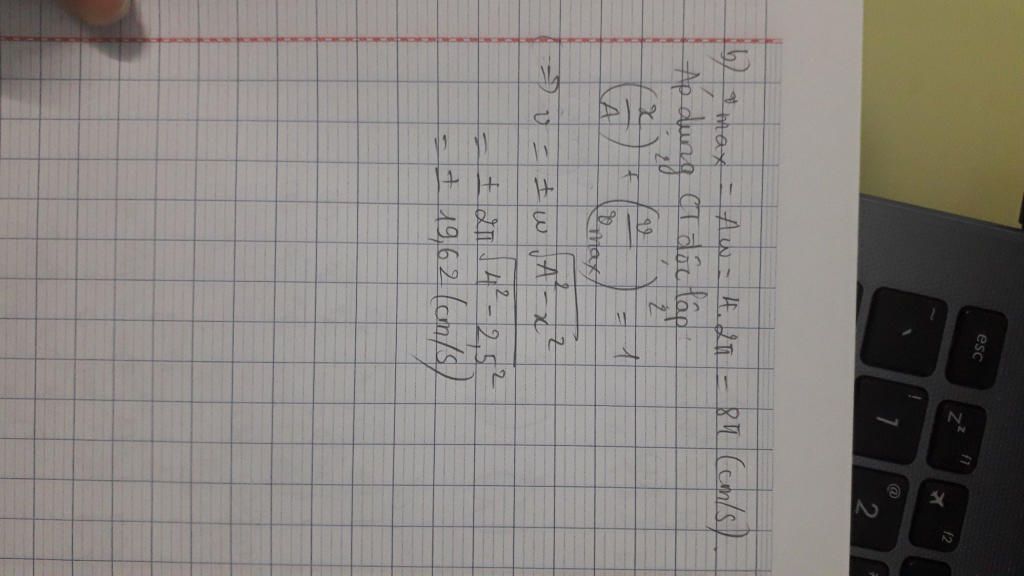 b) vmax = Aω = 4.2π = 8π (cm/s).
Áp dụng CT độc lập:
(x/A)² + (v/vmax)² = 1
=> v = ± ω√(A² - x²)
= ± 2π√(4² - 2,5²)
= ± 19,62 (cm/s)
esc
~
`
!
1
@
2
Zᶻ
f1
f2